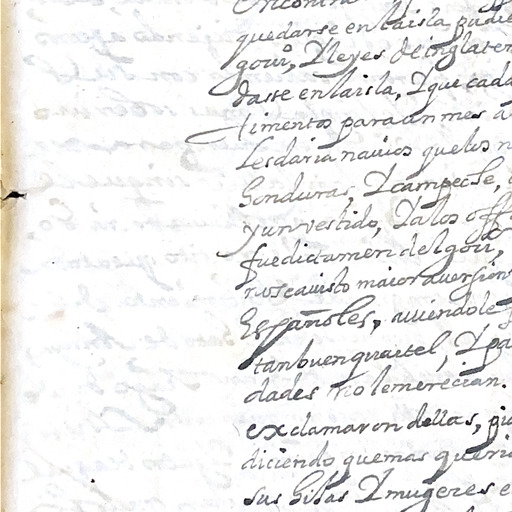 quedarse en la isla, pudie
gour, Y leyes de inglater
daste en la isla, Y que cada
timentos para un mes a
les daria nauios que los
honduras, Y campeche,
y un vestido, Y a los offi
fue dictamen del gour,
nos ca uisto maior auersion
Españoles, auiendole
tan buen quartel, Y pa
dades no le merecian.
exclamaron dellas, pi
diciendo que mas queri
sus hijas Y mugeres e